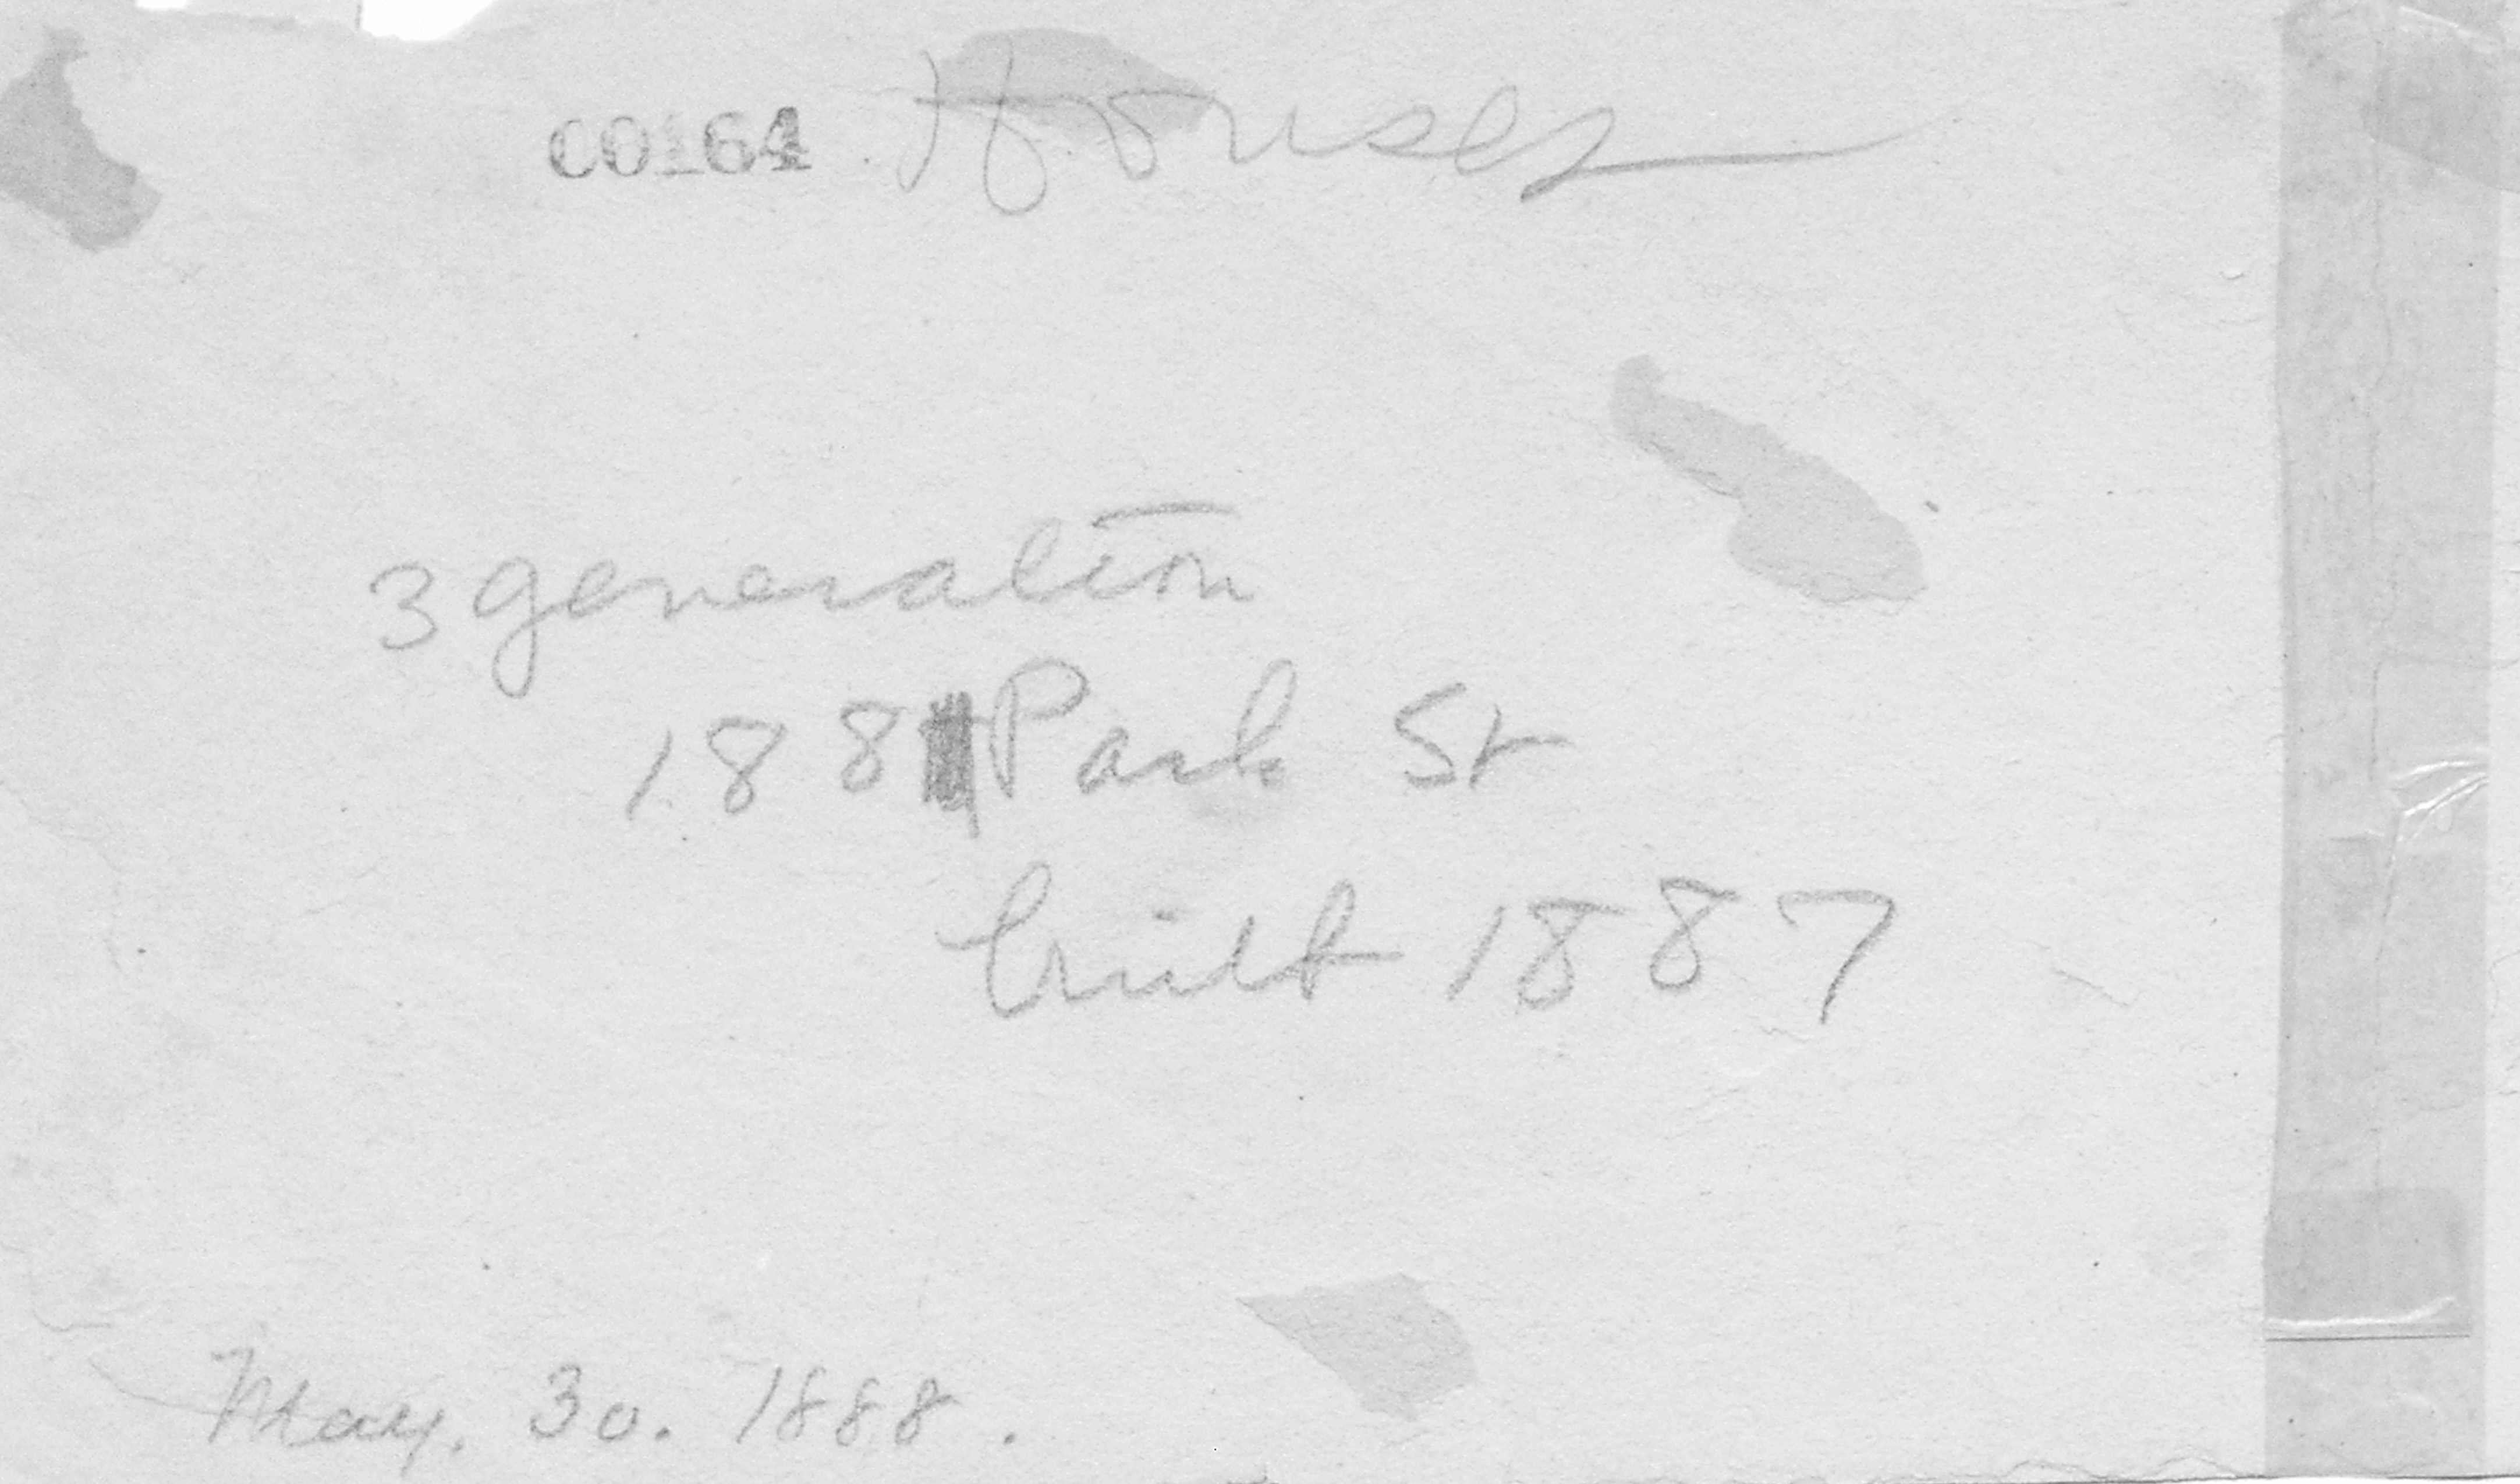 00164 Houses
3 generation
188 Park St
built 1887
May. 30. 1888.